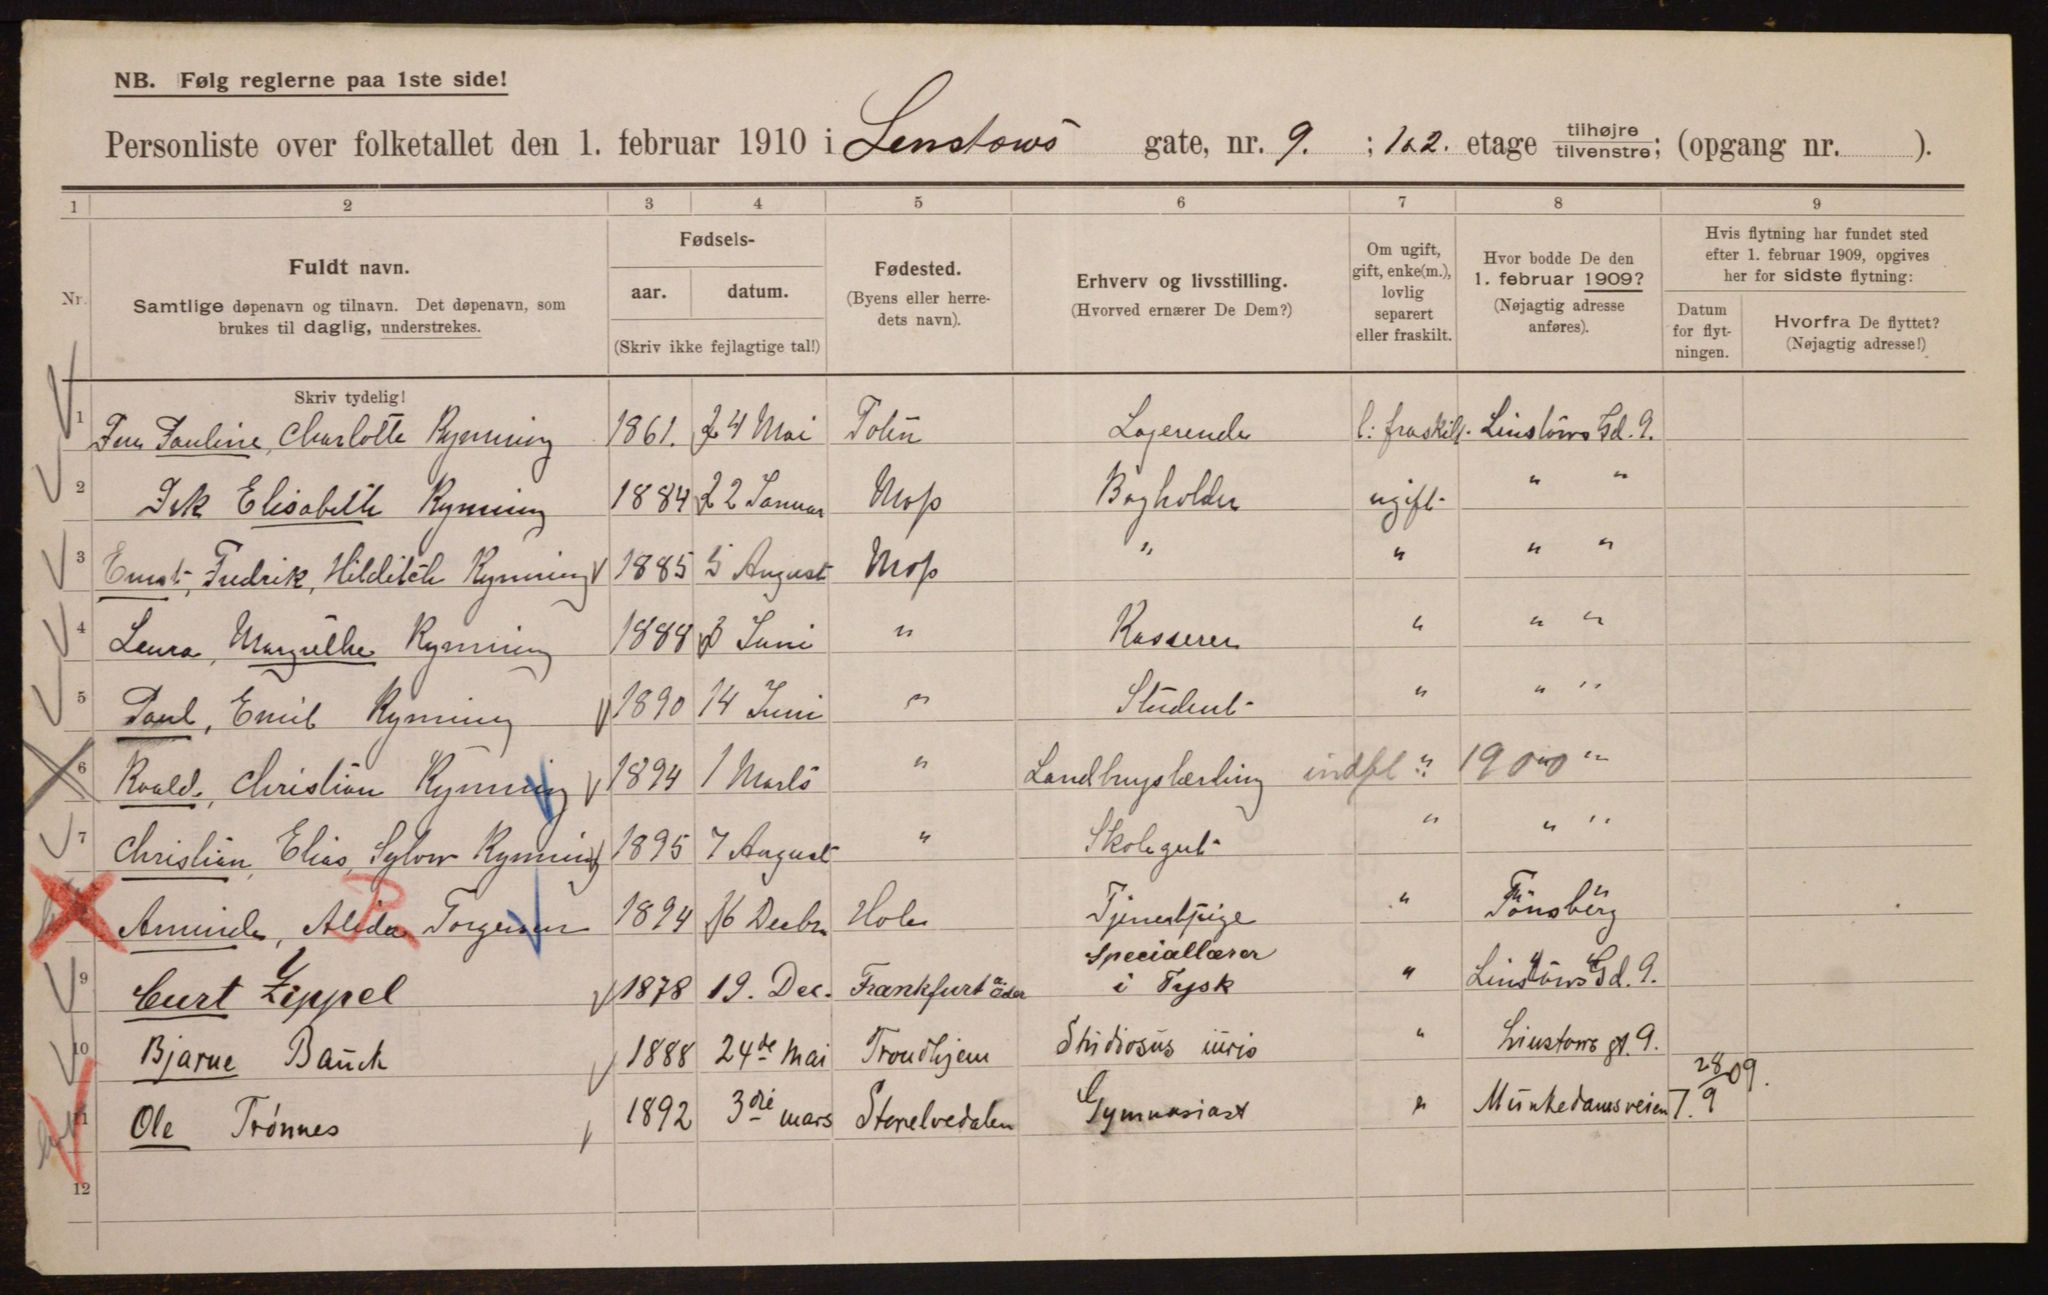 NB. Følg reglerne paa 1ste side!
Personliste over folketallet den 1. februar 1910 i Lenstows gate, nr. 9. ; 1&2. etage tilhøjre / tilvenstre; (opgang nr. ).
1 2 3 4 5 6 7 8 9
Nr. Fuldt navn. Samtlige døpenavn og tilnavn. Det døpenavn, som brukes til daglig, understrekes.
Fødsels- aar. datum. (Skriv ikke fejlagtige tal!)
Fødested. (Byens eller herredets navn).
Erhverv og livsstilling. (Hvorved ernærer De Dem?)
Om ugift, gift, enke(m.), lovlig separert eller fraskilt.
Hvor bodde De den 1. februar 1909? (Nøjagtig adresse anføres).
Hvis flytning har fundet sted efter 1. februar 1909, opgives her for sidste flytning:
Datum for flytningen. Hvorfra De flyttet? (Nøjagtig adresse!)
Skriv tydelig!
1 Fru Pauline, Charlotte Rynning 1861. 24 Mai Toten Logerende l: fraskilt. Linstows Gd. 9.
2 Frk Elisabeth Rynning 1884 22 Januar Moss Bogholder ugift " "
3 Ernst, Fredrik, Hilditch Rynning 1885 5 August Moss " " " "
4 Laura, Margrethe Rynning 1888 3 Juni " Kasserer " " "
5 Paul, Emil Rynning 1890 14 Juni " Student " " "
6 Roald, Christian Rynning 1894 1 Marts " Landbrugslærling indfl " 1900 "
7 Christian, Elias, Sylow Rynning 1895 7 August " Skolegut " " "
Aminda, Alida Torgersen 1894 16 Decbr Hole Tjenestpige " Tönsberg
9 Curt Zippel 1878 19. Dec. Frankfurt a Oder Speciallærer i Tysk " Linstows Gd. 9.
10 Bjarne Bauck 1888 24de Mai Trondhjem Studiosus iuris " Linstows gt. 9.
11 Ole Trønnes 1892 3die mars Storelvedalen Gymnasiast " Munkedamsveien 7. 28/9 09.
12